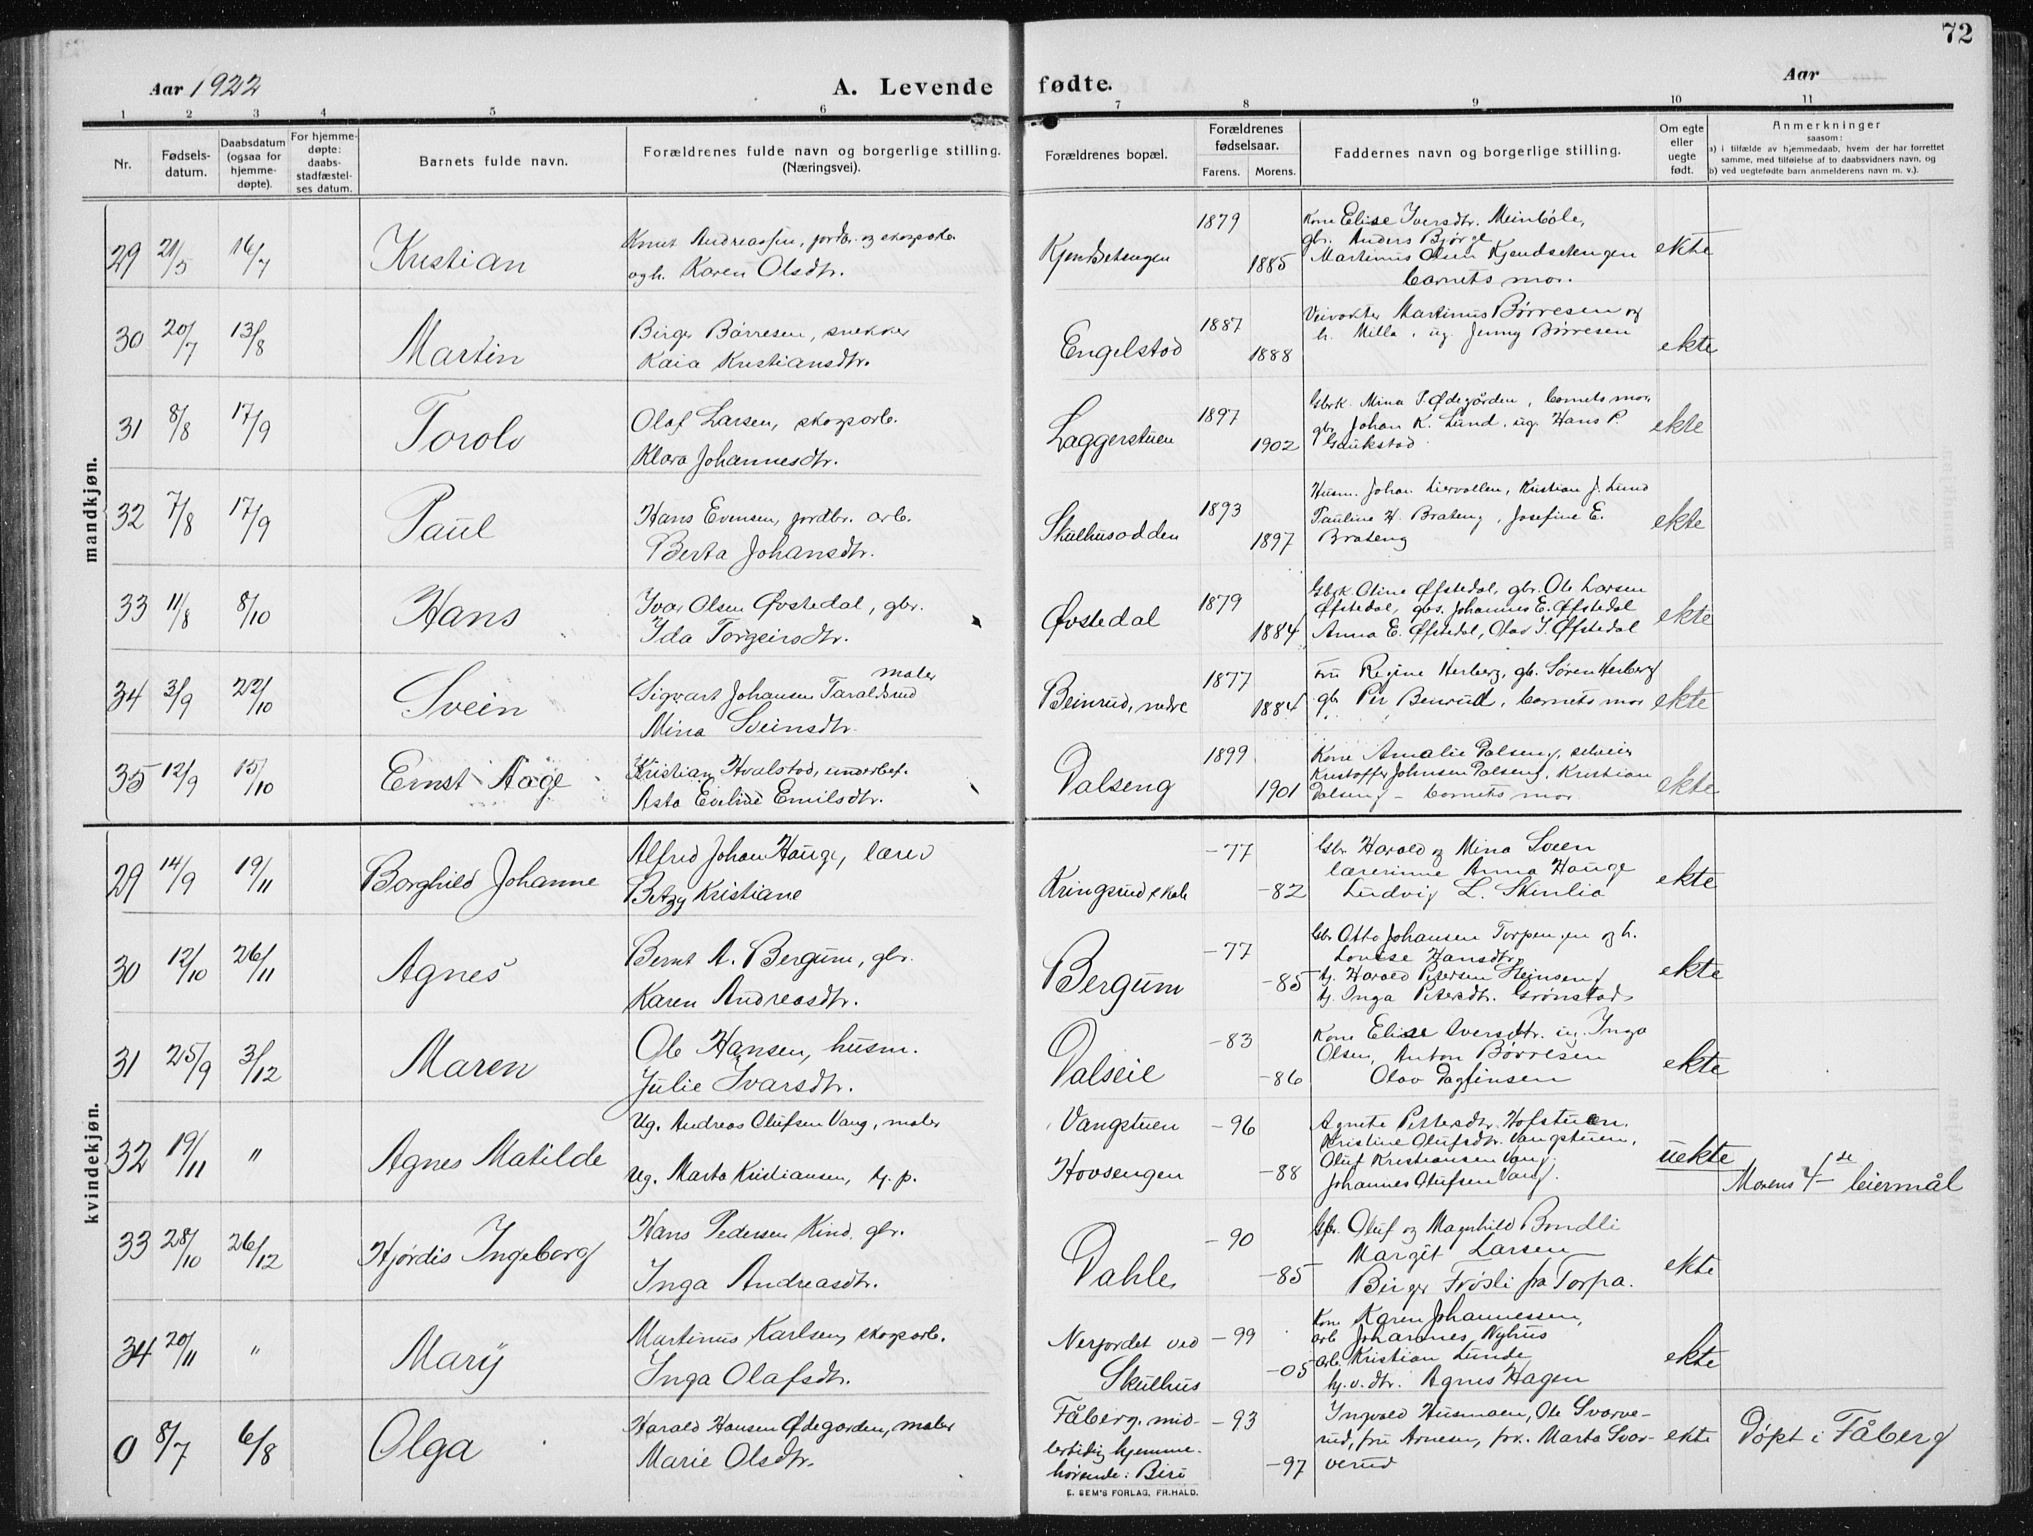 72
Aar 1922
A. Levende fødte.
Aar
1 2 3 4 5 6 7 8 9 10 11
Nr.
Fødsels-
datum.
Daabsdatum
(ogsaa for
hjemme-
døpte).
For hjemme-
døpte:
daabs-
stadfæstel-
ses datum.
Barnets fulde navn.
Forældrenes fulde navn og borgerlige stilling.
(Næringsvei).
Forældrenes bopæl.
Forældrenes
fødselsaar.
Farens. Morens.
Faddernes navn og borgerlige stilling.
Om egte
eller
uegte
født.
Anmerkninger
saasom:
a) i tilfælde av hjemmedaab, hvem der har forrettet
samme, med tilføielse af to daabsvidners navn, og
b) ved uegtefødte barn anmelderens navn m. v.).
mandkjøn.
29 21/5 16/7 Kristian
Knut Andreassen, jordbr. og skogsarb.
og h. Karen Olsdtr.
1879
1885
Kone Elise Iversdtr. Meinbøle,
gbr. Anders Bjørge
Martinus Olsen Kjendsetengen
barnets mor.
ekte
30 20/7 13/8 Martin
Birger Børresen, snekker
Kaia Kristiansdtr.
Engelstad
1887
1888
Veivokter Martinus Børresen og
h. Milla, ug. Jenny Børresen
ekte
31 8/8 17/9 Torolv
Olaf Larsen, skogsarb.
Klara Johannesdtr.
Laggerstuen
1897
1902
Gbrk. Mina P. Ødegården, barnets mor,
gbr. Johan K. Lund, ug. Hans P.
Gaukstad
ekte
32 7/8 17/9 Paul
Hans Evensen, jordbr. arb.
Berta Johansdtr.
Skulhusodden
1893
1897
Husm. Johan Liervollen, Kristian J. Lund
Pauline H. Brateng, Josefine E.
Brateng
ekte
33 11/8 8/10 Hans
Ivar Olsen Øvstedal, gbr.
Ida Torgeirsdtr.
Øvstedal
1879
1884
Gbrk Oline Øfstedal, gbr. Ole Larsen
Øfstedal, gbs. Johannes E. Øfstedal
Anna E. Øfstedal, Olav I. Øfstedal
ekte
34 3/9 22/10 Svein
maler
Sigvart Johansen Taraldsrud
Mina Sveinsdtr.
Beinrud, nedre
1877
1884
Fru Regine Herberg, gb. Søren Herberg
gb Per Benrud, barnets mor
ekte
35 12/9 15/10 Ernst Aage
Kristian Hvalstad, underbef.
Asta Eveline Emilsdtr.
Dalseng
1899
1901
Kone Amalie Dalseng, selveier
Kristoffer Johnsen Dalseng, Kristian
Dalseng – barnets mor
ekte
kvindekjøn.
29 14/9 19/11 Borghild Johanne
Alfred Johan Hauge, lærer
Betzy Kristiane
Kringsrud skole
-77
-82
Gbr Harald og Mina Sveen
lærerinne Anna Hauge
Ludvig L. Skinlia
ekte
30 12/10 26/11 Agnes
Bernt A. Bergum, gbr.
Karen Andreasdtr.
Bergum
-77
-85
Gbr Otto Johansen Torpengen og h.
Louise Hansdtr.
tj. Harald Petersen
tj. Inga Petersdtr. Grønstad
ekte
31 25/9 3/12 Maren
Ole Hansen, husm.
Julie Ivarsdtr.
Dalseie
-83
-86
Kone Elise Iversdtr. ug. Inga
Olsen, Anton Børresen
Olav Dagfinsen
ekte
32 19/11 " Agnes Matilde
Ug. Andreas Olufsen Vang, maler
Ug. Marta Kristiansen, tj. p.
Vangstuen
Hovsengen
-96
-88
Agnete Pettersdtr. Hofstuen.
Kristine Olufsdtr. Vangstuen,
Oluf Kristiansen Vang,
Johannes Olufsen Vang.
uekte
Morens 4de leiermål
33 28/10 26/12 Hjørdis Ingeborg
Hans Pedersen Kind, gbr.
Inga Andreasdtr.
Dahle
-90
-85
Gbr. Oluf og Magnhild Bondli
Margit Larsen
Birger Frøsli fra Torpa.
ekte
34 20/11 " Mary
Martinus Karlsen, skogsarb.
Inga Olafsdtr.
Nerjordet ved
Skulhus
-99
-05
Kone Karen Johannessen,
arb Johannes Nyhus
arb. Kristian Lunde
tj. v. dtr. Agnes Hagen
ekte
0 8/7 6/8 Olga
Harald Hansen Ødegarden, maler
Marie Olsdtr.
Fåberg, mid-
lertidig hjemme-
hørende i Biri
-93
-97
Ingvald Husmoen, Ole Svarve-
rud, fru Arnesen, frk. Marta Svar-
verud
ekte
Døpt i Fåberg
E. SEM'S FORLAG, FR.HALD.